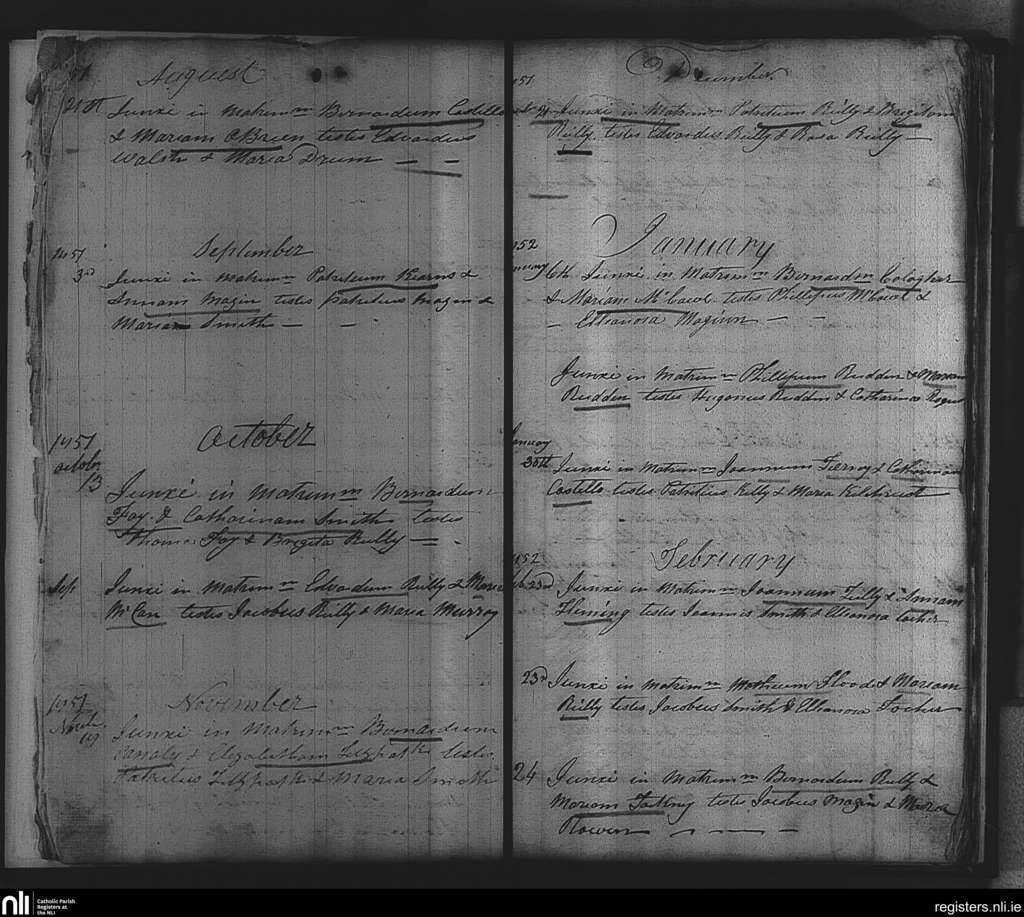 51 August
21st Junxi in matrimm Bernardum Costello
& Mariam OBrien testes Edvardus
Walsh & Maria Drum
1851 September
3rd Junxi in matrimm Patritium Kearns &
Annam Magin testes Patritius Magin &
Mariam Smith
1851 October
October
13 Junxi in matrimm Bernardum
Foy & Catharinam Smith testes
Thomas Foy & Brigita Reilly
Sep Junxi in matrimm Edvardum Reilly & Maria
McCan testes Jacobus Reilly & Maria Murray
1851 November
19 Junxi in Matrimm Bernardum
& Elizabetham Fitzpatk testes
Patritius Fitzpatk & Maria Smith
51 December
21 Junxi in Matrimm Patritium Reilly & Brigitam
Reilly testes Edvardus Reilly & Rosa Reilly
52 January
6th Junxi in Matrimm Bernardm Cologher
& Mariam McCawl testes Phillipus McCawl &
Elleanora Maginn
Junxi in matrimm Phillipum Rudden & Mariam
Rudden testes Hugonius Rudden & Catharina
January
30th Junxi in matrimm Joannum Tierny & Catharinam
Costello testes Patritius Reilly & Maria
52 February
23rd Junxi in matrimm Joannum Tully & Annam
Fleming testes Joannis Smith & Elleanora
23rd Junxi in matrimm Mathewm Flood & Mariam
Reilly testes Jacobus Smith & Elleanora
24 Junxi in matrimm Bernardum Reilly &
Mariam testes Jacobus Magin & Maria
Rowen
nli
Catholic Parish
Registers at
the NLI
registers.nli.ie